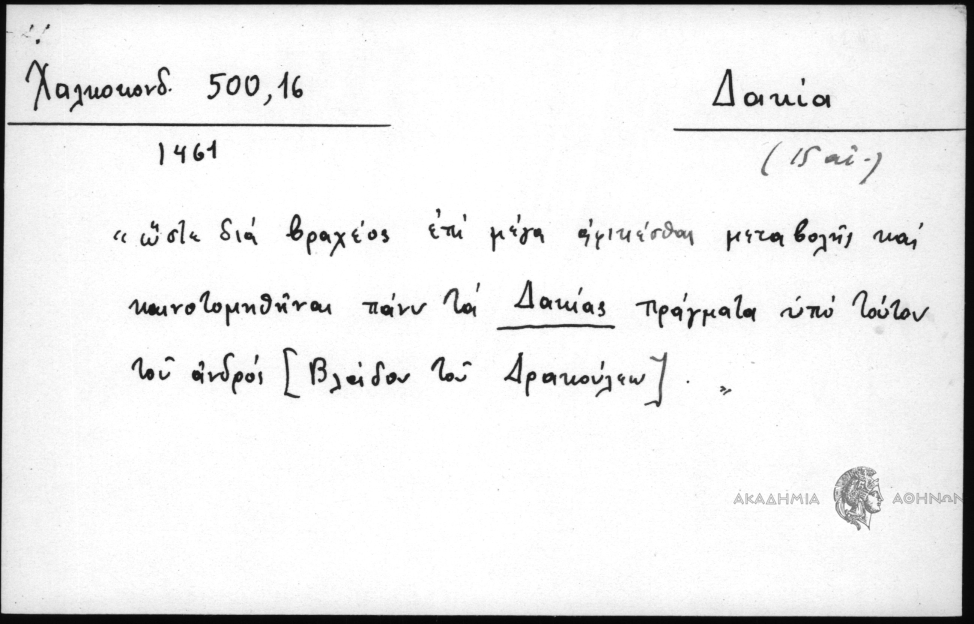 Χαλκοκονδ. 500,16
Δακία
1461
(15 αἰ.)
« ὥστε διά βραχέος ἐπί μέγα ἀφικέσθαι μεταβολῆς καί
καινοτομηθῆναι πάνυ τά Δακίας πράγματα ὑπό τούτου
τοῦ ἀνδρός [Βλάδου τοῦ Δρακούλεω] . »
ΑΚΑΔΗΜΙΑ ΑΘΗΝΩΝ